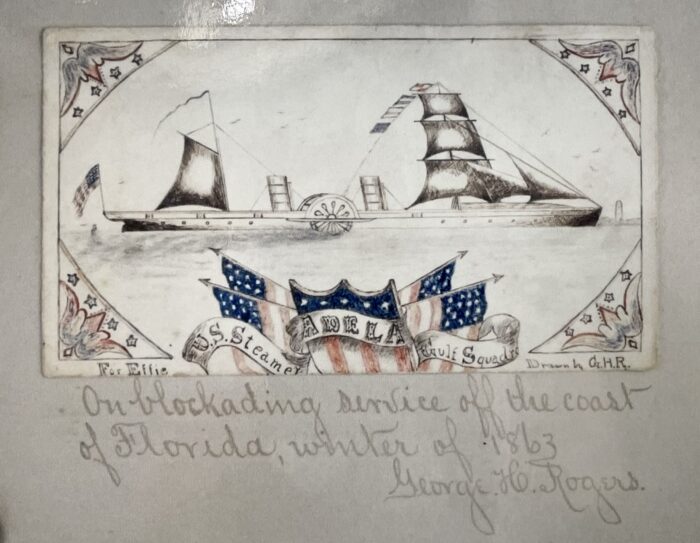 U.S. Steamer
ADELA
Gulf Squad
For Effie
Drawn by G.H.R.
On blockading service off the coast
of Florida, winter of 1863
George. H. Rogers.